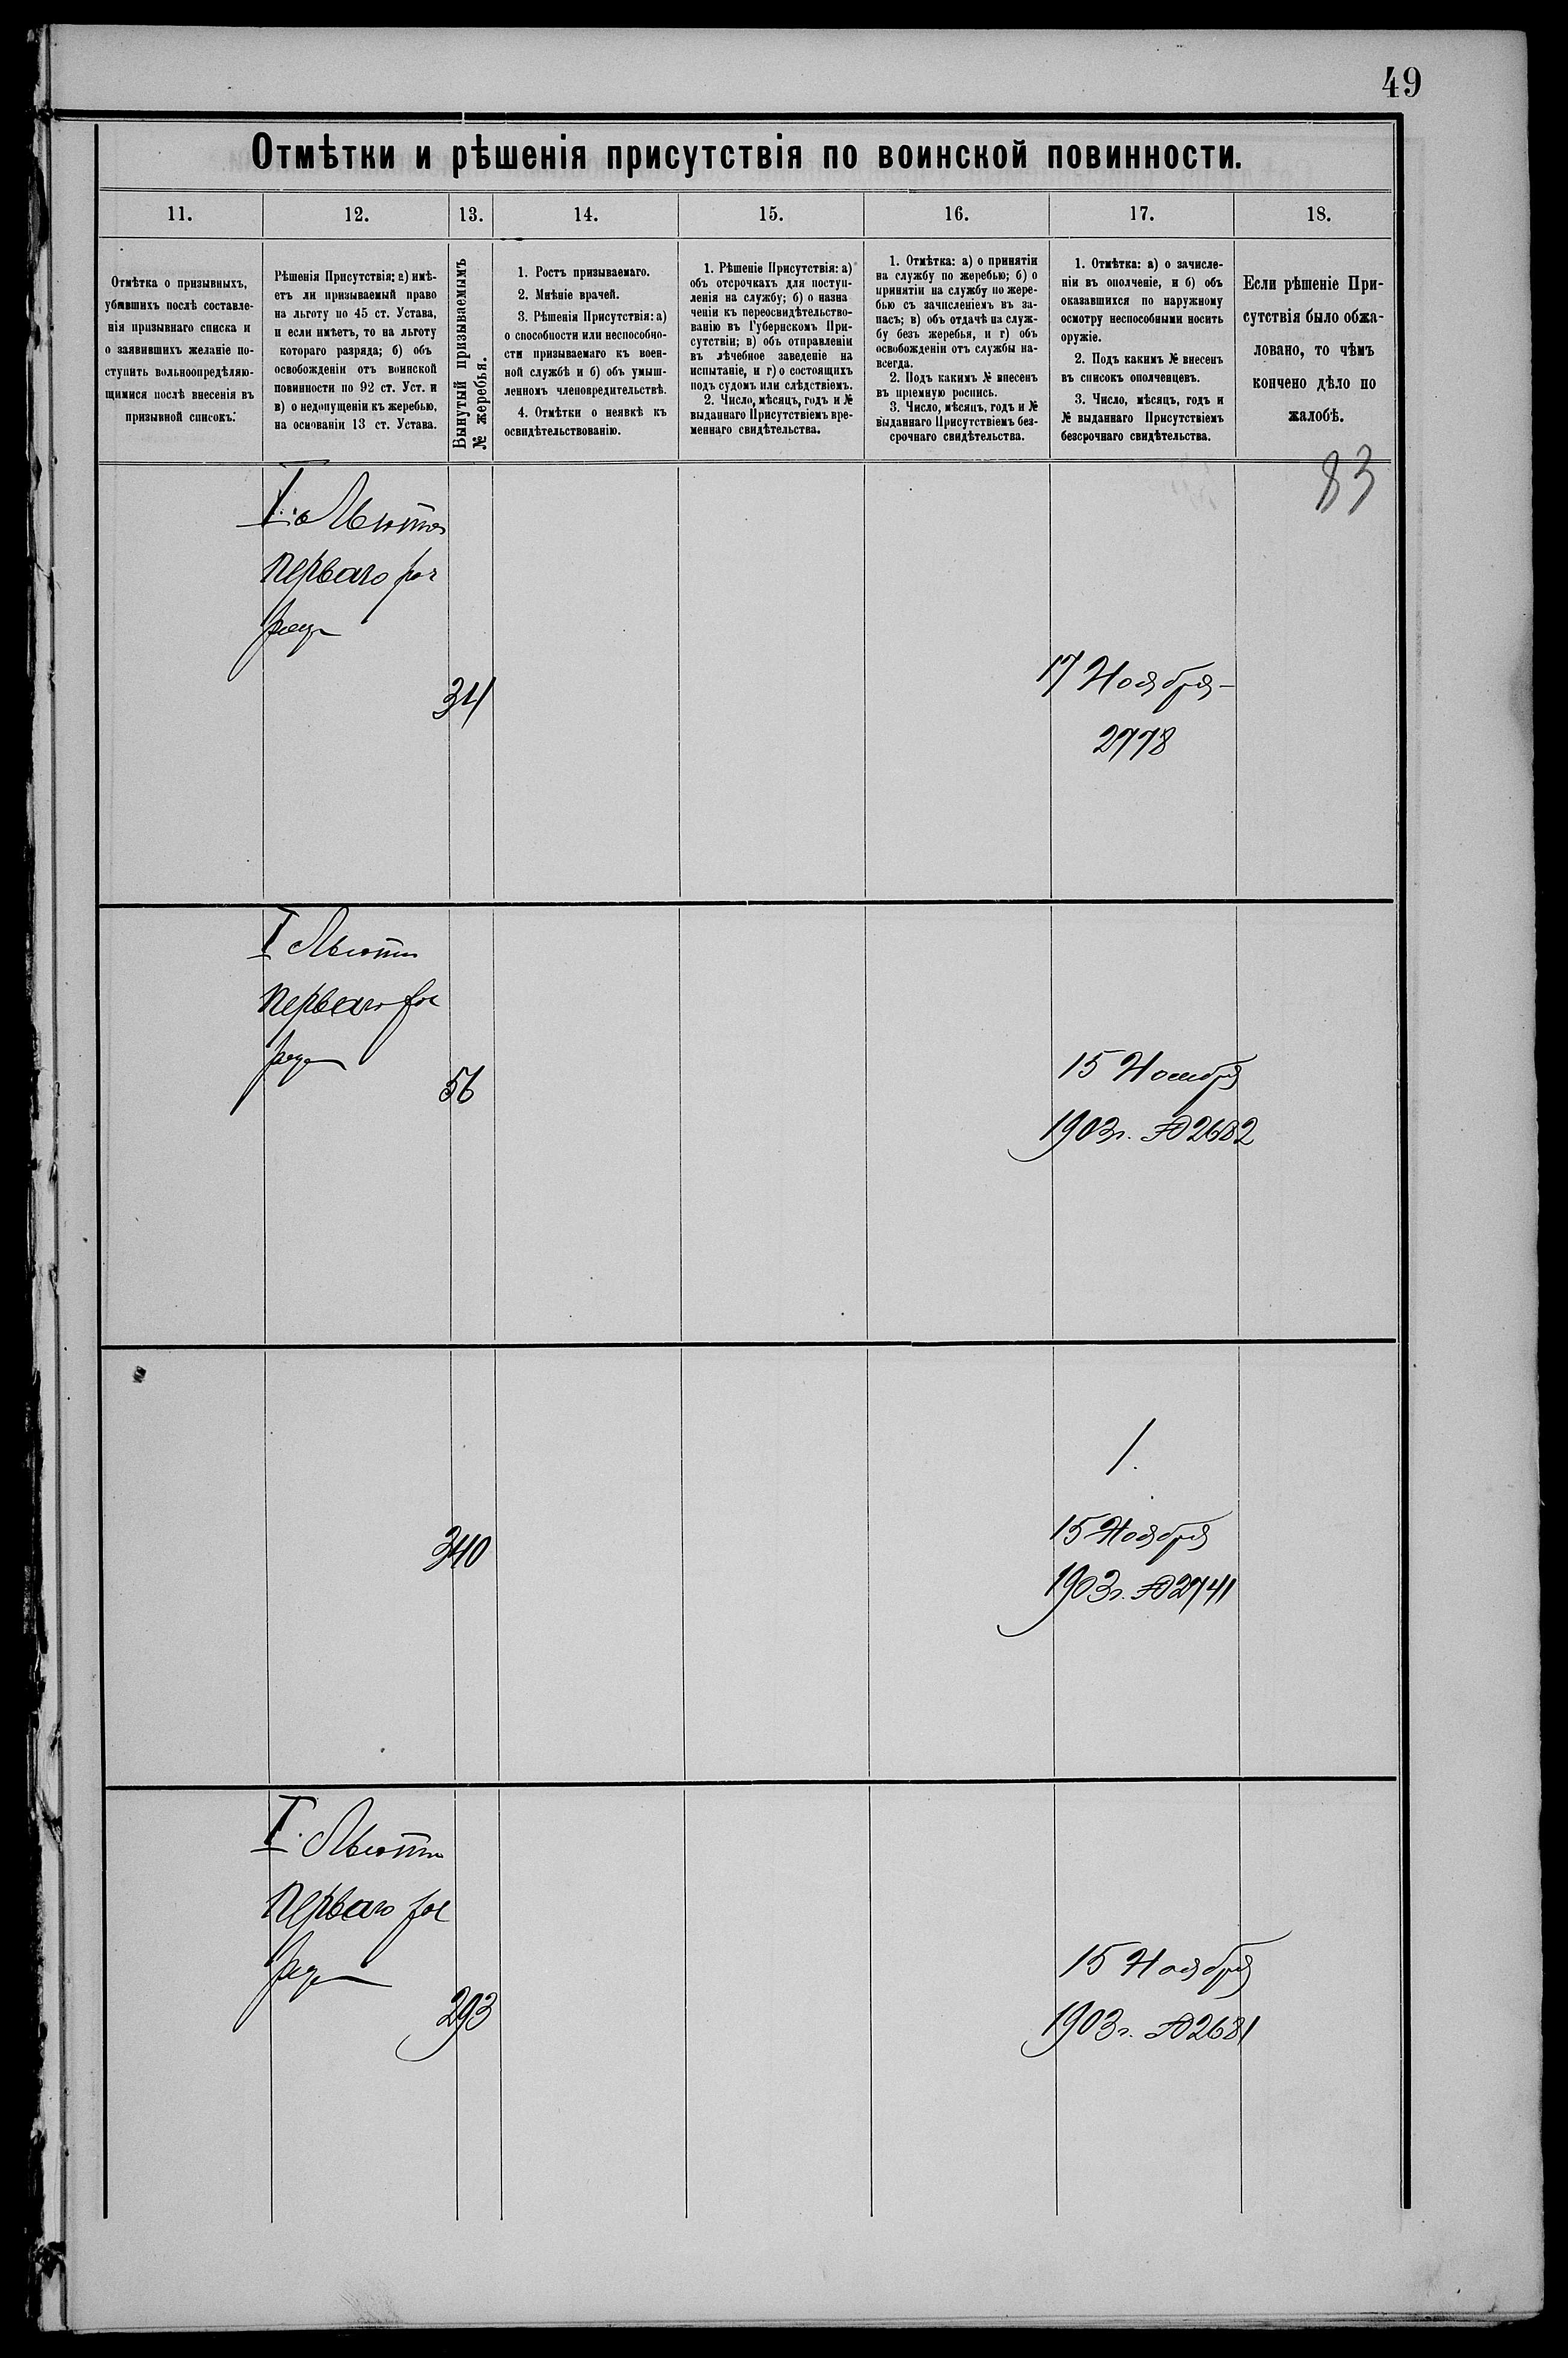 49
Отмѣтки и рѣшенія присутствія по воинской повинности.
11.
12.
13.
14.
15.
16.
17.
18.
Отмѣтка о призывныхъ,
убывшихъ послѣ составле-
нія призывнаго списка и
о заявившихъ желаніе по-
ступить вольноопредѣляю-
щимися послѣ внесенія въ
призывной списокъ.
Рѣшенія Присутствія: а) имѣ-
етъ ли призываемый право
на льготу по 45 ст. Устава,
и если имѣетъ, то на льготу
котораго разряда; б) объ
освобожденіи отъ воинской
повинности по 92 ст. Уст. и
в) о недопущеніи къ жеребью,
на основаніи 13 ст. Устава.
Вынутый призываемымъ
№ жеребья.
1. Ростъ призываемаго.
2. Мнѣніе врачей.
3. Рѣшенія Присутствія: а)
о способности или неспособно-
сти призываемаго къ воен-
ной службѣ и б) объ умыш-
ленномъ членовредительствѣ.
4. Отмѣтки о неявкѣ къ
освидѣтельствованію.
1. Рѣшеніе Присутствія: а)
объ отсрочкахъ для поступ-
ленія на службу; б) о назна
ченіи къ переосвидѣтельство-
ванію въ Губернскомъ При-
сутствіи; в) объ отправленіи
въ лѣчебное заведеніе на
испытаніе, и г) о состоящихъ
подъ судомъ или слѣдствіемъ.
2. Число, мѣсяцъ, годъ и №
выданнаго Присутствіемъ вре-
меннаго свидѣтельства.
1. Отмѣтка: а) о принятіи
на службу по жеребью; б) о
принятіи на службу по жере-
бью съ зачисленіемъ въ за-
пасъ; в) объ отдачѣ на служ-
бу безъ жеребья, и г) объ
освобожденіи отъ службы на-
всегда.
2. Подъ какимъ № внесенъ
въ пріемную роспись.
3. Число, мѣсяцъ, годъ и №
выданнаго Присутствіемъ без-
срочнаго свидѣтельства.
1. Отмѣтка: а) о зачисле-
ніи въ ополченіе, и б) объ
оказавшихся по наружному
осмотру неспособными носить
оружіе.
2. Подъ какимъ № внесенъ
въ списокъ ополченцевъ.
3. Число, мѣсяцъ, годъ и
№ выданнаго Присутствіемъ
безсрочнаго свидѣтельства.
Если рѣшеніе При-
сутствія было обжа-
ловано, то чѣмъ
кончено дѣло по
жалобѣ.
83
I. Льгота
перваго раз
ряда
34
17 Ноября
2778
I Льгота
перваго раз
ряда
56
15 Ноября
1903г. № 2682
1.
340
15 Ноября
1903г. № 2741
I. Льгота
перваго раз
ряда
293
15 Ноября
1903г. № 2681